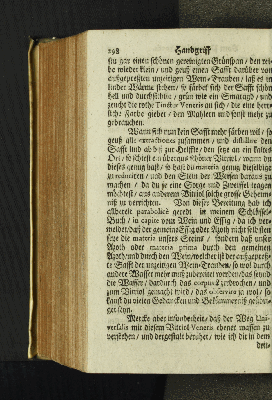 298 Handgriff
sie gar einen schönen gereinigten Grünspan / den rei-
be wieder klein / und geuß einen Safft darüber von
außgepreßten unzeitigen Wein-Trauben / laß es in
linder Wärme stehen / so färbet sich der Safft schön
hell und durchsichtig / grün wie ein Smaragd / und
zeucht die rothe Tinctur Veneris an sich / die eine herr-
liche Farbe giebet / den Mahlern und sonst mehr zu
gebrauchen.
Wann sich nun kein Safft mehr färben will / so
geuß alle extractiones zusammen / und distillire den
Safft und ab biß zur Helffte / den setze an ein kaltes
Ort / so schießt ein überaus schöner Vitriol / wann du
dieses genug hast / so hast du materia genug dieselbige
zu reduciren / und den Stein der Weisen daraus zu
machen / da du je eine Sorge und Zweiffel tragen
möchtest / aus anderem Vitriol solche grosse Geheim-
niß zu verrichten. Von dieser Bereitung hab ich
allbereit parabolicè geredt in meinem Schlüssel-
Buch / in capite vom Wein und Essig / da ich ver-
meldet / daß der gemeine Essig oder Azoth nicht selbsten
seye die materia unsers Steins / sondern daß unser
Azoth oder materia prima durch den gemeinen
Azoth / und durch den Wein / welcher ist der außgepreß-
te Safft der unzeitigen Wein-Trauben / so wol durch
andere Wasser mehr muß zubereitet werden / das seynd
die Wasser / dardurch das corpus zerbrochen / und
zum Vitriol gemacht wird / das observire ja wol / so
kanst du vielen Gedancken und Bekümmerniß geübri-
get seyn.
Mercke aber insonderheit / daß der Weg Uni-
versalis mit diesem Vitriol Veneris ebener massen zu
verstehen / und dergestalt berühret / wie ich dir in dem